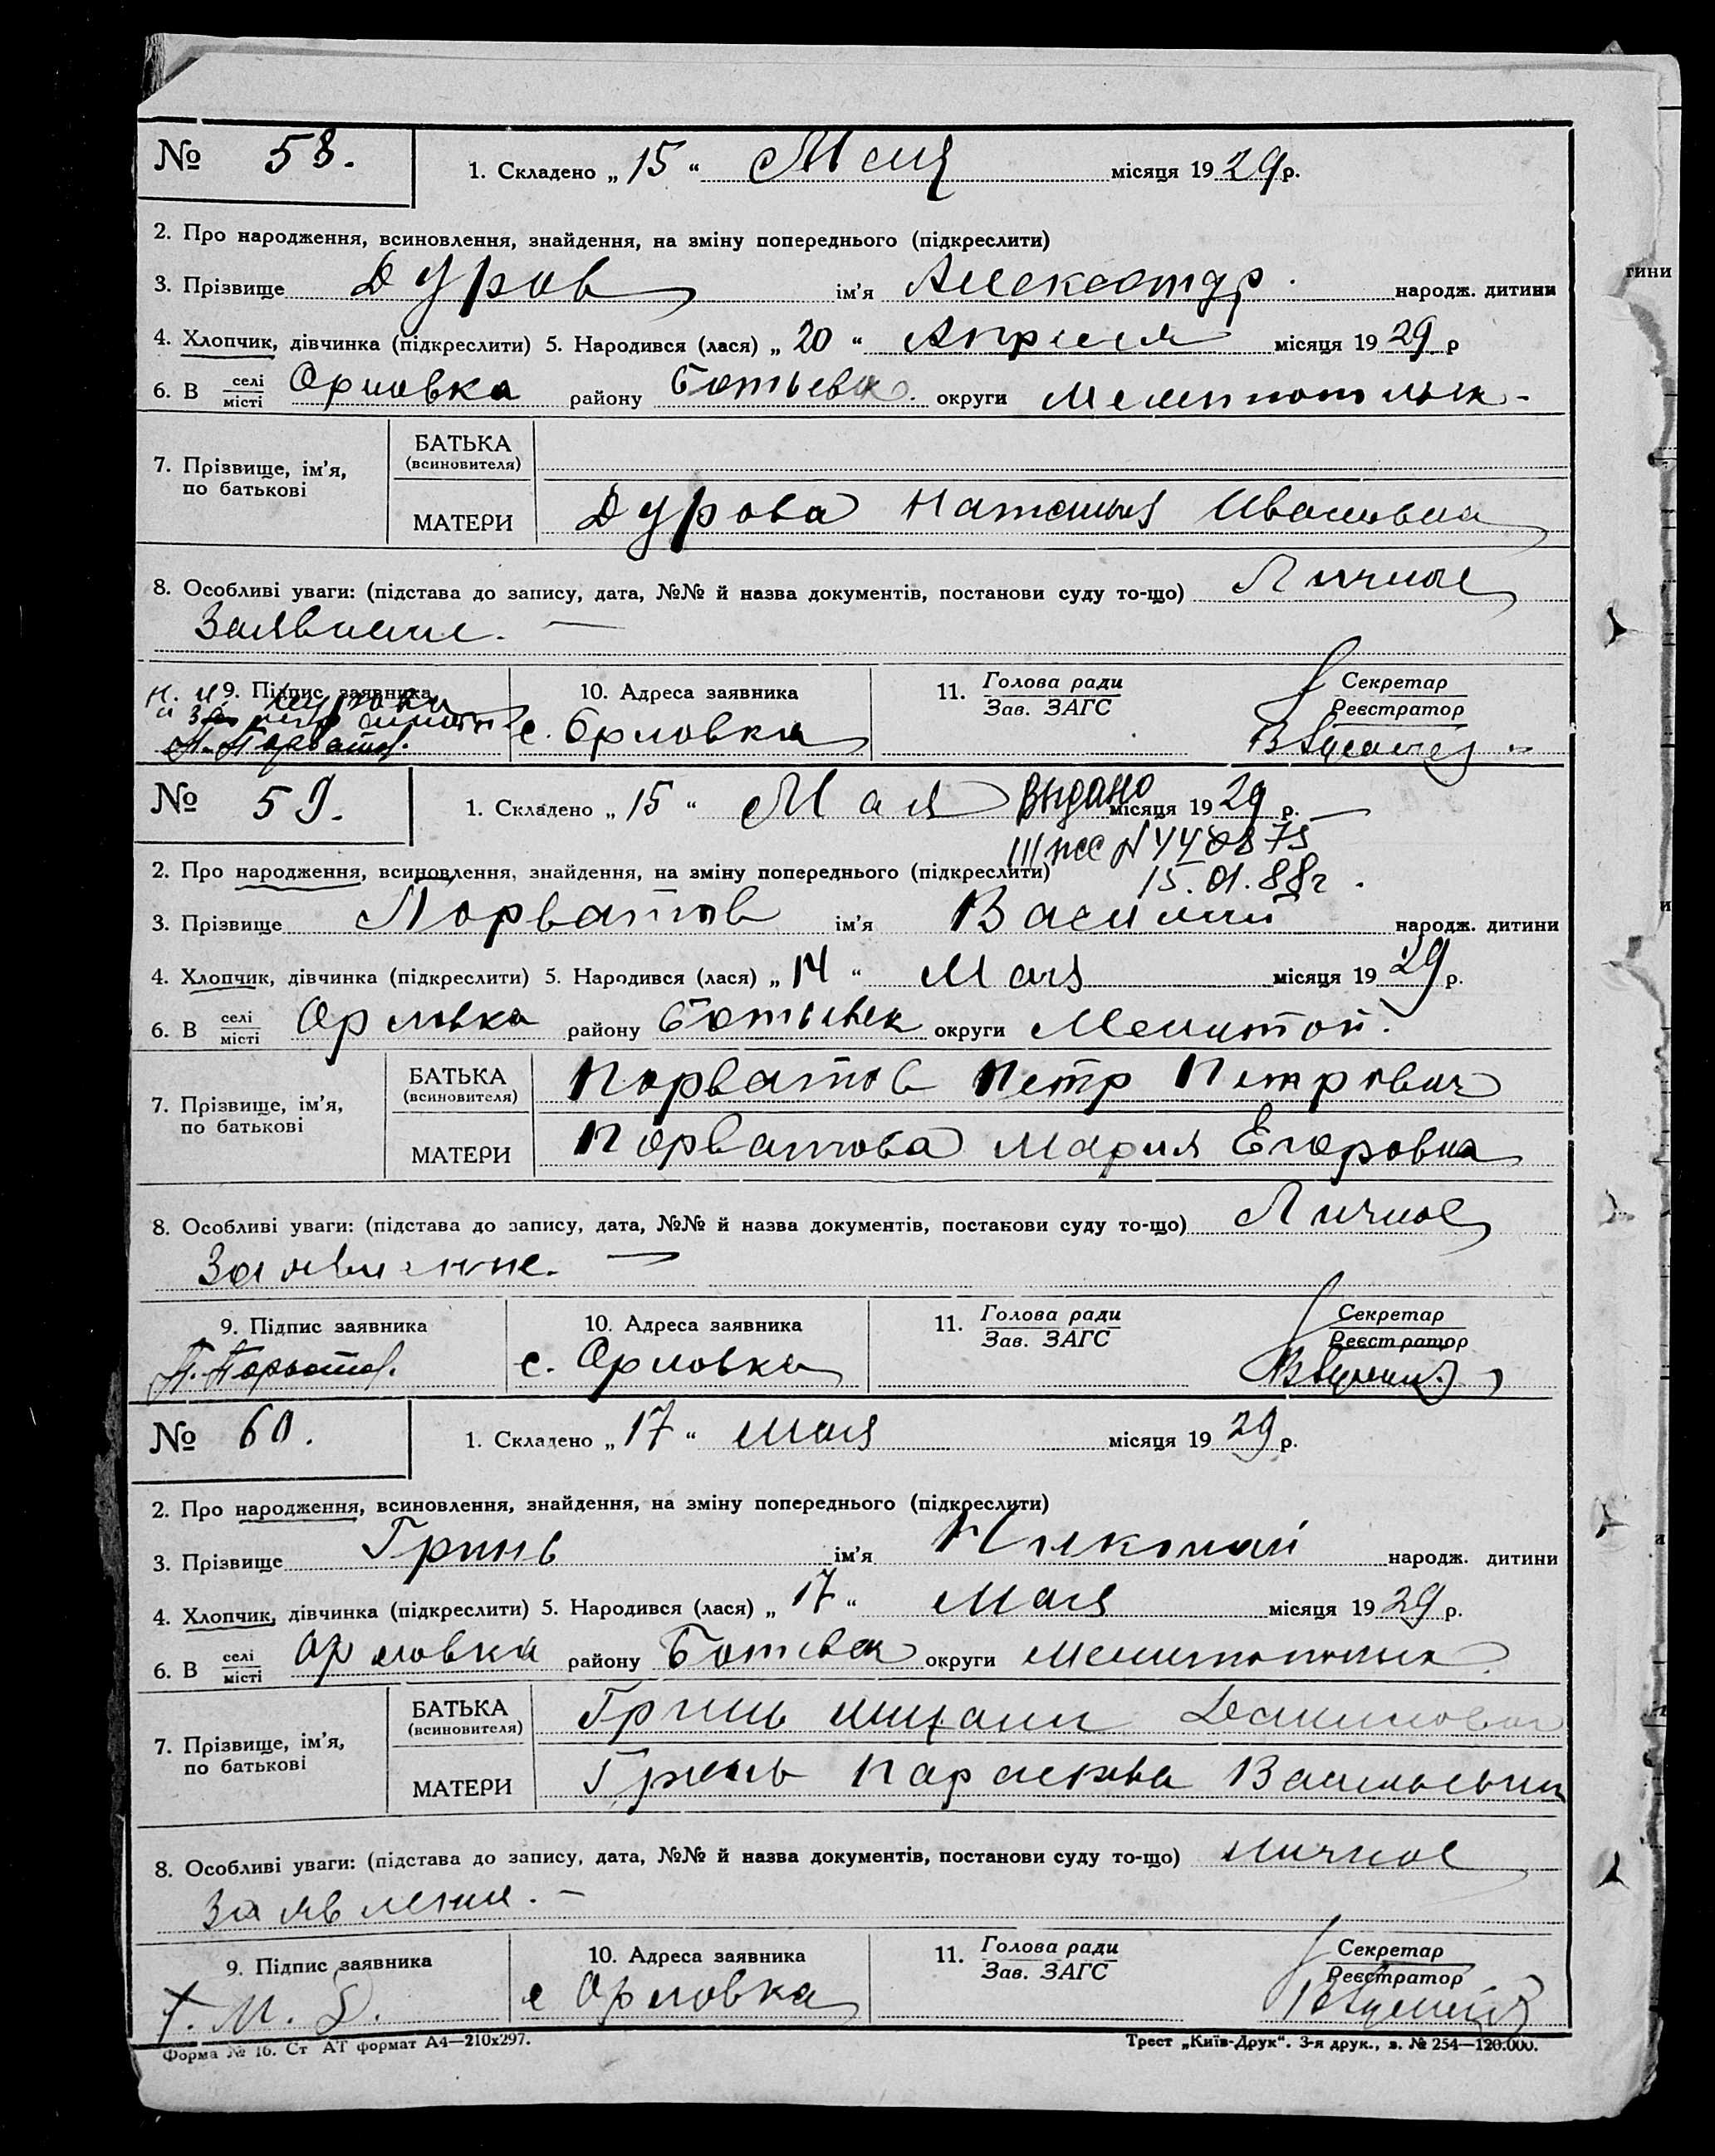 № 58. 1. Складено „15“ Мая місяця 1929 р.
2. Про народження, всиновлення, знайдення, на зміну попереднього (підкреслити)
3. Прізвище Дуров ім’я Александр. народж. дитини
4. Хлопчик, дівчинка (підкреслити) 5. Народився (лася) „20“ Апреля місяця 1929 р
6. В селі місті Орловка району Ботьевск. округи
7. Прізвище, ім’я, по батькові БАТЬКА (всиновителя)
МАТЕРИ Дурова Наталья Ивановна
8. Особливі уваги: (підстава до запису, дата, №№ й назва документів, постанови суду то-що) Личное
Заявление. —
9. Підпис заявника 10. Адреса заявника 11. Голова ради Зав. ЗАГС Секретар Реєстратор
с. Орловка
П. Порватов.
№ 59. 1. Складено „15“ Мая місяця 1929 р.
Выдано
15.01.88г.
2. Про народження, всиновлення, знайдення, на зміну попереднього (підкреслити)
3. Прізвище Порватов ім’я Василий народж. дитини
4. Хлопчик, дівчинка (підкреслити) 5. Народився (лася) „14“ Мая місяця 1929 р.
6. В селі місті Орловка району Ботьевск округи Мелитоп.
7. Прізвище, ім’я, по батькові БАТЬКА (всиновителя) Порватов Петр Петрович
МАТЕРИ Порватова Мария Егоровна
8. Особливі уваги: (підстава до запису, дата, №№ й назва документів, постанови суду то-що) Личное
Заявление. —
9. Підпис заявника 10. Адреса заявника 11. Голова ради Зав. ЗАГС Секретар Реєстратор
П. Порватов. с. Орловка
№ 60. 1. Складено „17“ мая місяця 1929 р.
2. Про народження, всиновлення, знайдення, на зміну попереднього (підкреслити)
3. Прізвище Гринь ім’я Николай народж. дитини
4. Хлопчик, дівчинка (підкреслити) 5. Народився (лася) „17“ Мая місяця 1929 р.
6. В селі місті Орловка району округи
7. Прізвище, ім’я, по батькові БАТЬКА (всиновителя) Гринь Михаил Данилович
МАТЕРИ Гринь Парасковья
8. Особливі уваги: (підстава до запису, дата, №№ й назва документів, постанови суду то-що) личное
Заявление. —
9. Підпис заявника 10. Адреса заявника 11. Голова ради Зав. ЗАГС Секретар Реєстратор
с Орловка
Форма № 16. Ст АТ формат А4—210х297. Трест „Київ-Друк“. 3-я друк., з. № 254—120.000.